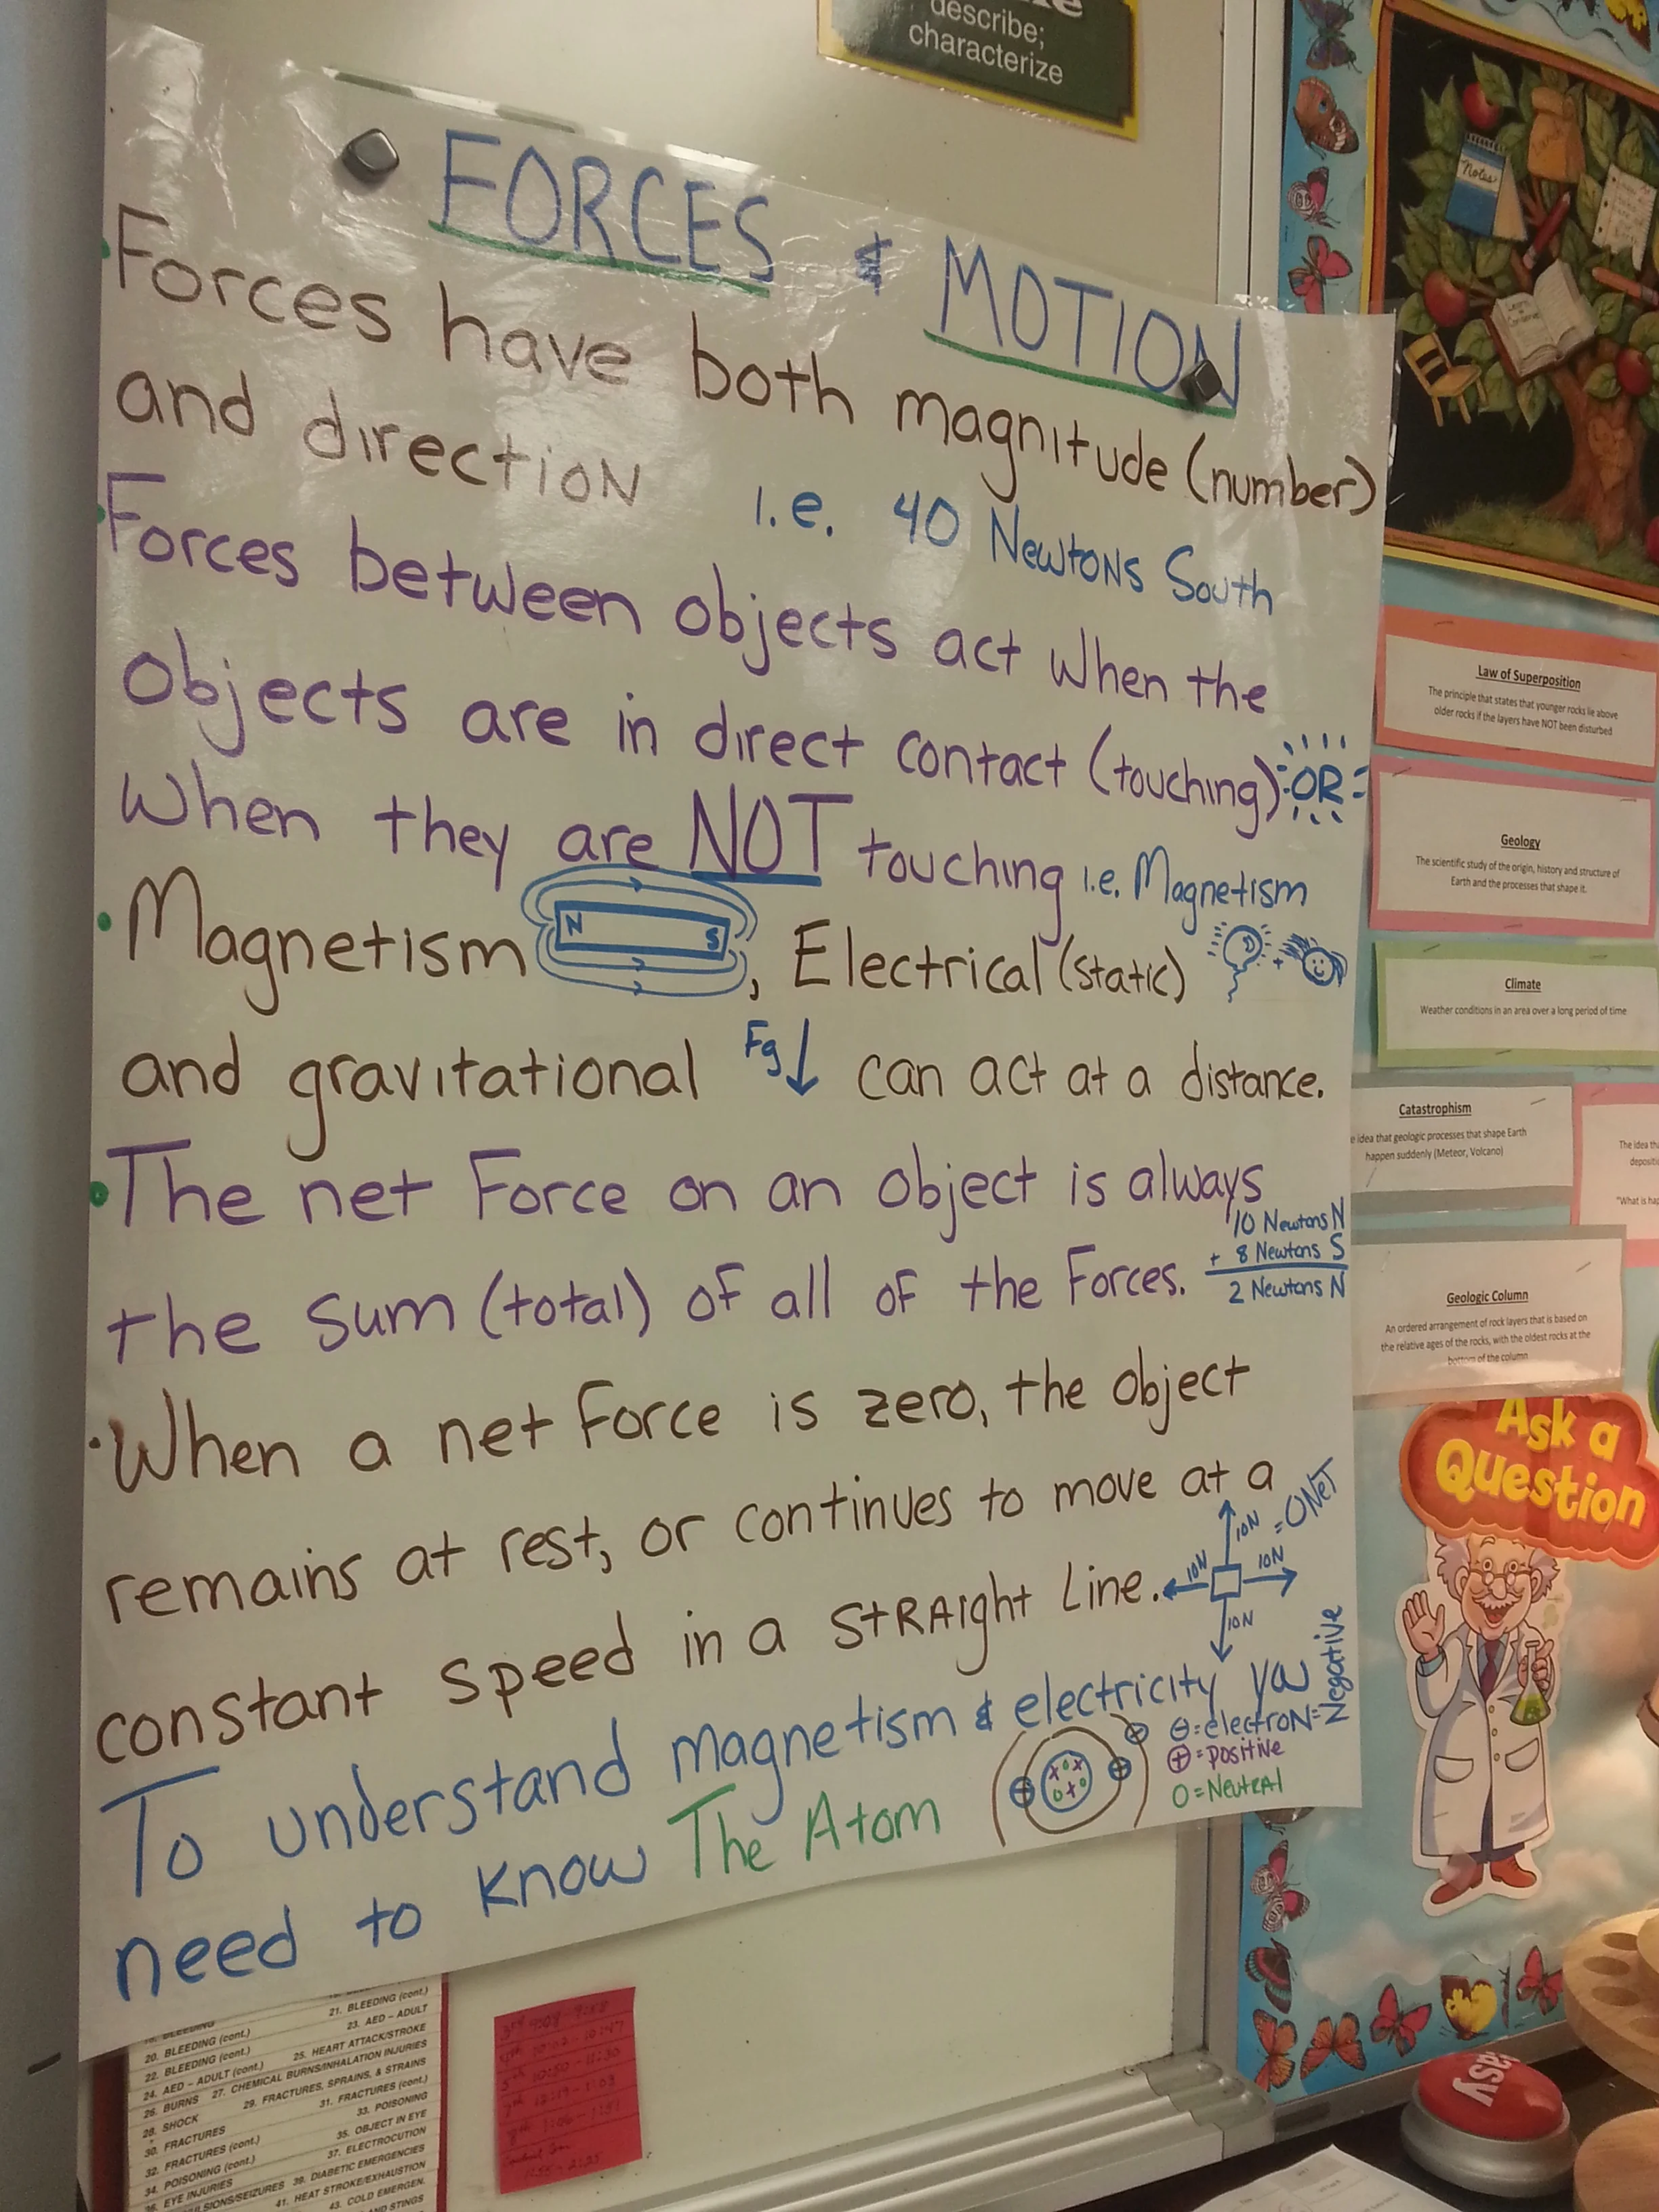 describe;
characterize
FORCES & MOTION
Forces have both magnitude (number)
and direction i.e. 40 Newtons South
Forces between objects act when the
objects are in direct contact (touching) OR
when they are NOT touching i.e. Magnetism
N S
Magnetism, Electrical (static)
and gravitational Fg can act at a distance.
The net Force on an object is always
the sum (total) of all of the Forces.
10 Newtons N
+ 8 Newtons S
2 Newtons N
When a net Force is zero, the object
remains at rest, or continues to move at a
constant speed in a straight Line.
10N = 0Net
10N 10N
10N
To understand magnetism & electricity you
need to know The Atom
⊖ = electron = Negative
⊕ = positive
O = Neutral
Notes
Law of Superposition
The principle that states that younger rocks lie above
older rocks if the layers have NOT been disturbed
Geology
The scientific study of the origin, history and structure of
Earth and the processes that shape it.
Climate
Weather conditions in an area over a long period of time
Catastrophism
idea that geologic processes that shape Earth
happen suddenly (Meteor, Volcano)
The idea
"What is
Geologic Column
An ordered arrangement of rock layers that is based on
the relative ages of the rocks, with the oldest rocks at the
bottom of the column
Ask a
Question
easy
21. BLEEDING (cont.)
20. BLEEDING (cont.) 23. AED – ADULT
22. BLEEDING (cont.) 25. HEART ATTACK/STROKE
24. AED – ADULT (cont.) 27. CHEMICAL BURNS/INHALATION INJURIES
26. BURNS 29. FRACTURES, SPRAINS, & STRAINS
28. SHOCK 31. FRACTURES (cont.)
30. FRACTURES 33. POISONING
32. FRACTURES (cont.) 35. OBJECT IN EYE
34. POISONING (cont.) 37. ELECTROCUTION
36. EYE INJURIES 39. DIABETIC EMERGENCIES
41. HEAT STROKE/EXHAUSTION
43. COLD EMERGEN.
AND STINGS